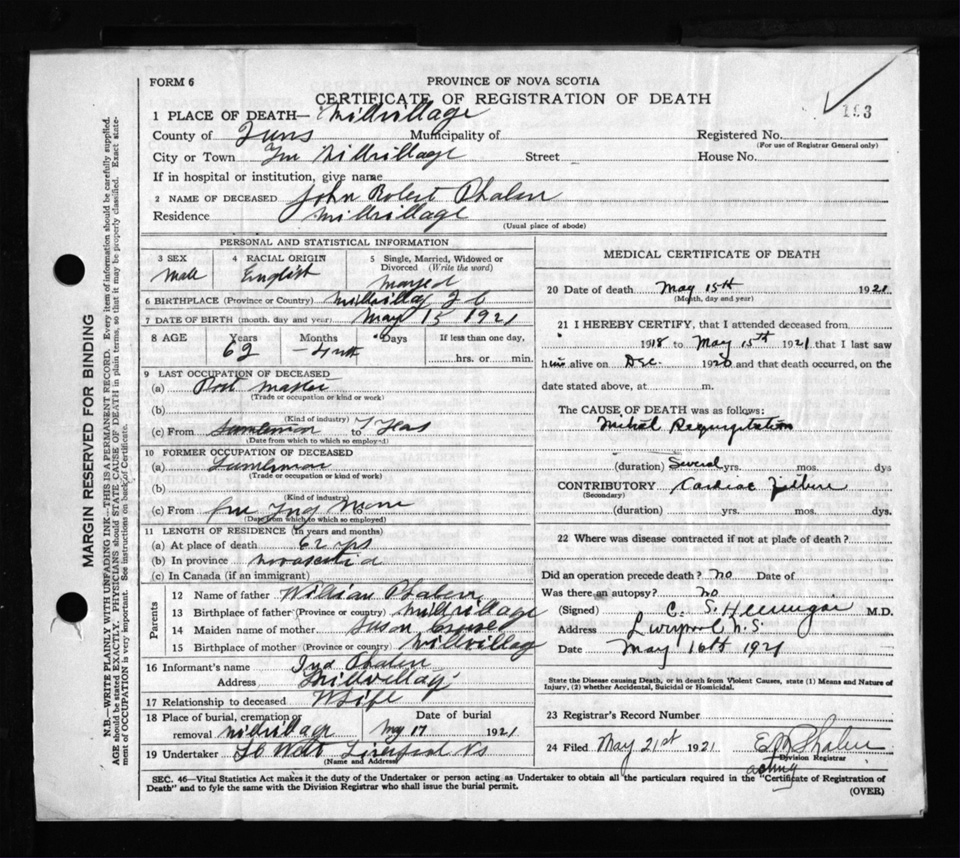 FORM 6
PROVINCE OF NOVA SCOTIA
CERTIFICATE OF REGISTRATION OF DEATH
193
1 PLACE OF DEATH— Millvillage
County of Municipality of Registered No.
(For use of Registrar General only)
City or Town Millvillage Street House No.
If in hospital or institution, give name
2 NAME OF DECEASED John Robert Phalen
Residence Millvillage
(Usual place of abode)
PERSONAL AND STATISTICAL INFORMATION
3 SEX Male
4 RACIAL ORIGIN English
5 Single, Married, Widowed or Divorced (Write the word)
6 BIRTHPLACE (Province or Country) Millvillag
7 DATE OF BIRTH (month, day and year) May 15 1921
8 AGE Years 62 Months Days If less than one day,
hrs. or min.
9 LAST OCCUPATION OF DECEASED
(a) Post Master
(Trade or occupation or kind or work)
(b)
(Kind of industry)
(c) From to
(Date from which to which so employed)
10 FORMER OCCUPATION OF DECEASED
(a)
(Trade or occupation or kind of work)
(b)
(Kind of industry)
(c) From to
(Date from which to which so employed)
11 LENGTH OF RESIDENCE (In years and months)
(a) At place of death 62 yrs
(b) In province novascotia
(c) In Canada (if an immigrant)
Parents
12 Name of father William Phalen
13 Birthplace of father (Province or country) Millvillage
14 Maiden name of mother Susan
15 Birthplace of mother (Province or country) Millvillag
16 Informant's name Phalen
Address Millvillag
17 Relationship to deceased Wife
18 Place of burial, cremation or removal Millvillage
Date of burial May 17 1921
19 Undertaker
(Name and Address)
MEDICAL CERTIFICATE OF DEATH
20 Date of death May 15th 1921
(Month, day and year)
21 I HEREBY CERTIFY, that I attended deceased from
1918 to May 15th 1921 that I last saw
him alive on Dec. 1920 and that death occurred, on the
date stated above, at m.
The CAUSE OF DEATH was as follows:
Mitral Regurgitation
(duration) Several yrs. mos. dys
CONTRIBUTORY Cardiac Failure
(Secondary)
(duration) yrs. mos. dys.
22 Where was disease contracted if not at place of death?
Did an operation precede death? no Date of
Was there an autopsy? no
(Signed) C. S. M.D.
Address Liverpool N.S.
Date May 16th 1921
State the Disease causing Death, or in death from Violent Causes, state (1) Means and Nature of Injury, (2) whether Accidental, Suicidal or Homicidal.
23 Registrar's Record Number
24 Filed May 21st 1921 Phalen
Division Registrar
acting
SEC. 46—Vital Statistics Act makes it the duty of the Undertaker or person acting as Undertaker to obtain all the particulars required in the "Certificate of Registration of
Death" and to fyle the same with the Division Registrar who shall issue the burial permit.
(OVER)
MARGIN RESERVED FOR BINDING
N.B.—WRITE PLAINLY WITH UNFADING INK—THIS IS A PERMANENT RECORD. Every item of information should be carefully supplied.
AGE should be stated EXACTLY. PHYSICIANS should STATE CAUSE OF DEATH in plain terms, so that it may be properly classified. Exact statement
of OCCUPATION is very important. See instructions on back of Certificate.